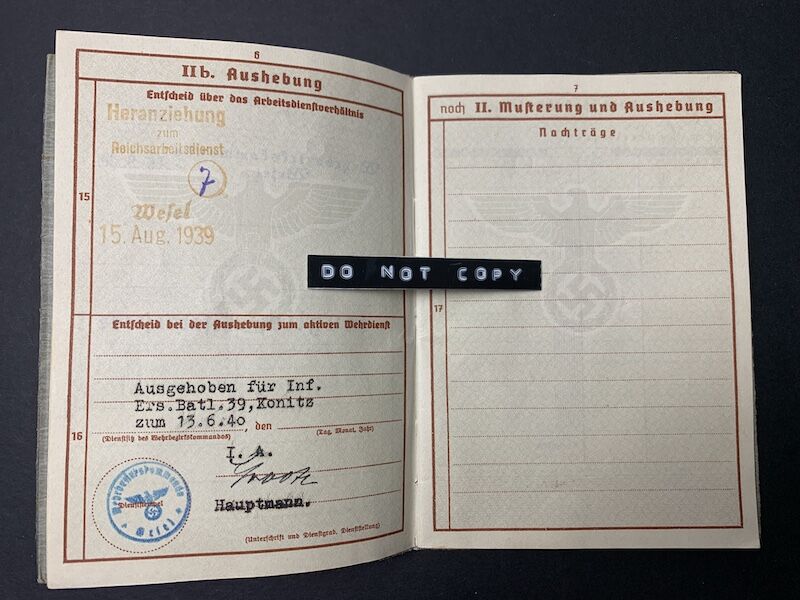 6
IIb. Aushebung
Entscheid über das Arbeitsdienstverhältnis
Heranziehung
zum
Reichsarbeitsdienst
7
Wesel
15. Aug. 1939
15
Entscheid bei der Aushebung zum aktiven Wehrdienst
Ausgehoben für Inf.
Ers.Batl.39,Konitz
zum 13.6.40, den
16
(Dienstsitz des Wehrbezirkskommandos)
(Tag, Monat, Jahr)
I. A.
Hauptmann.
Wehrbezirkskommando
Dienststempel
(Unterschrift und Dienstgrad, Dienststellung)
DO NOT COPY
7
noch II. Musterung und Aushebung
Nachträge
17